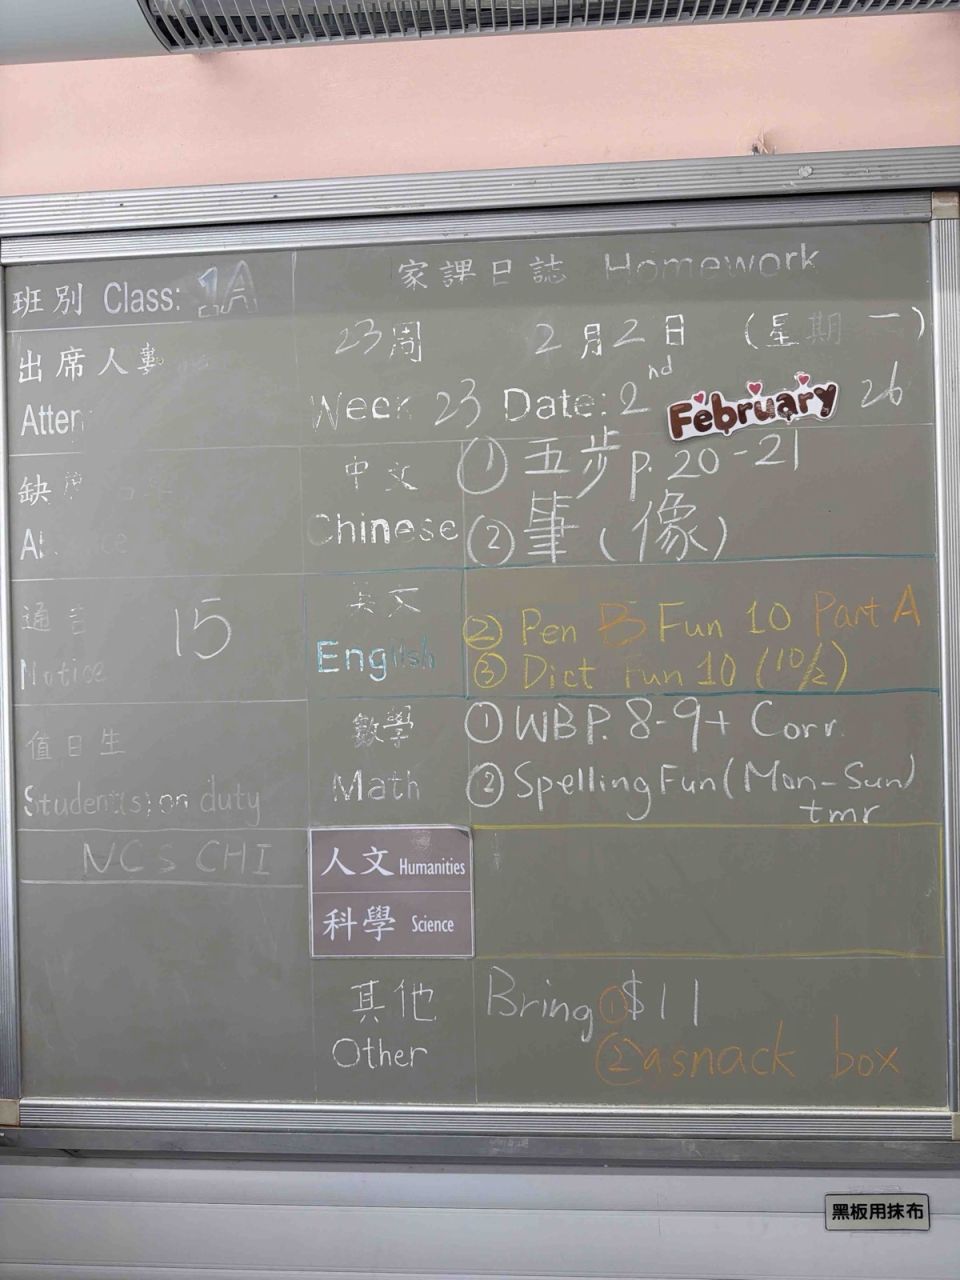 班別 Class: 1A
家課日誌 Homework
出席人數
Atten
23周 2月2日 (星期一)
Week 23 Date: 2nd February 26
缺席
中文
Chinese
① 五步 p. 20-21
② 筆 (像)
通告
Notice
15
英文
English
② Pen B Fun 10 Part A
③ Dict Fun 10 (10/2)
值日生
Student(s) on duty
數學
Math
① WB P. 8-9 + Corr.
② Spelling Fun (Mon-Sun)
tmr
NCS CHI
人文 Humanities
科學 Science
其他
Other
Bring ① $11
② a snack box
黑板用抹布